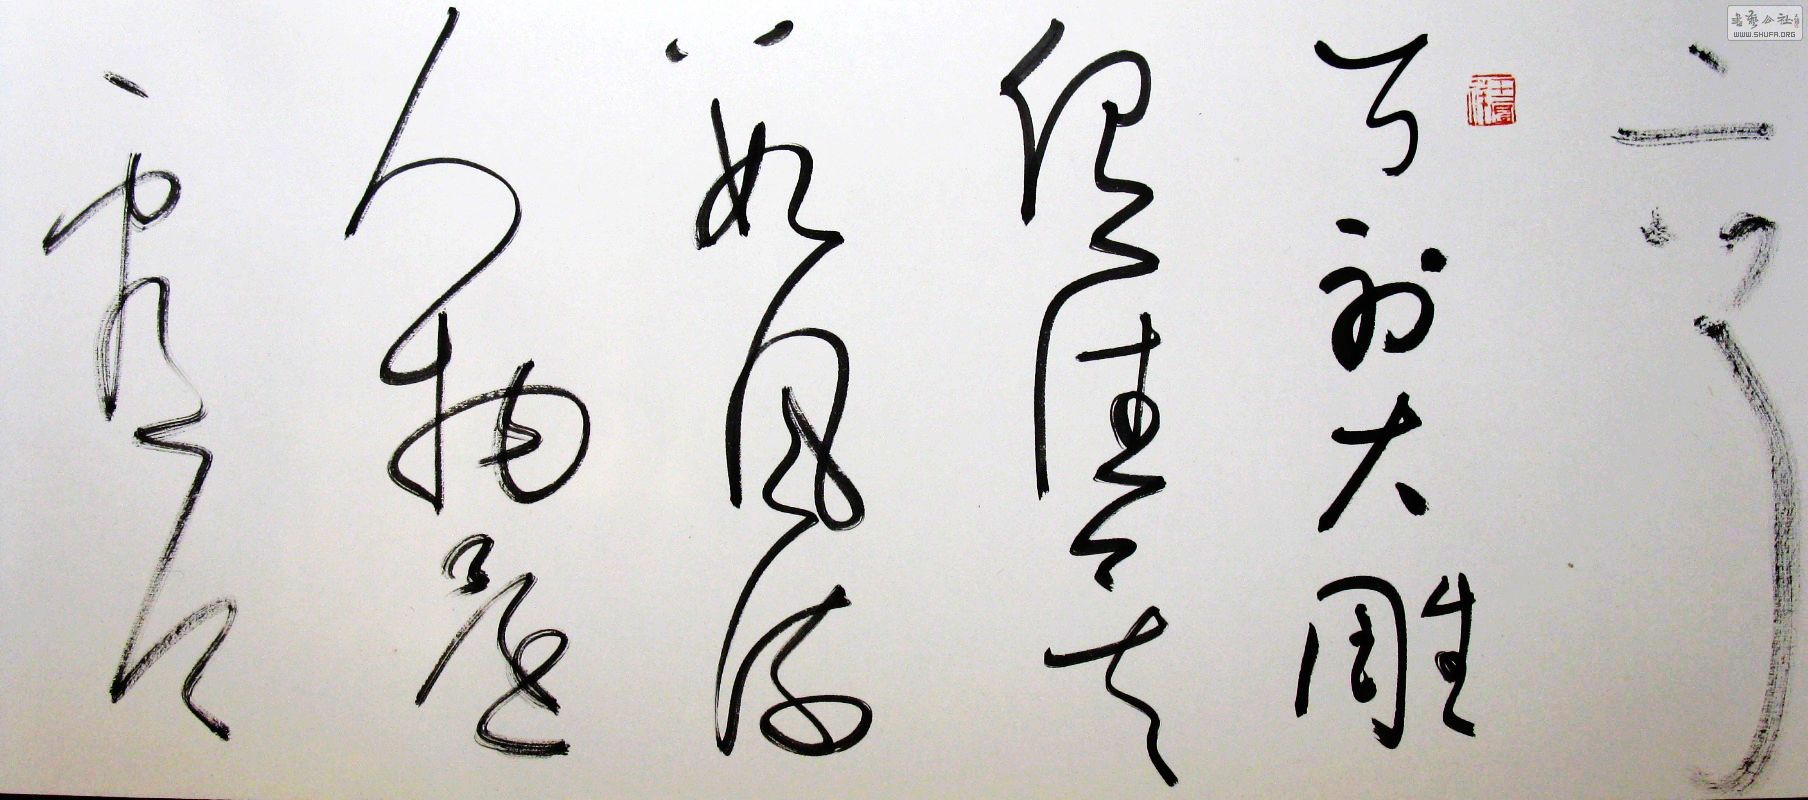 弯
弓射大雕
俱往矣
数风流
人物还
看今朝
书艺公社
WWW.SHUFA.ORG